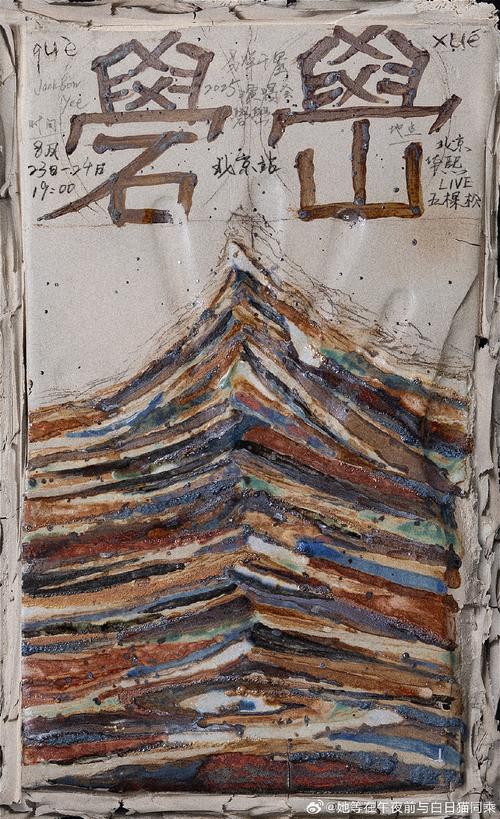 què
xué
礐嶨
Jackson
Yee
易烊千玺
2025
演唱会
时间
8月
23日-24日
19:00
北京站
地点
北京
华熙
LIVE
五棵松
@她等在午夜前与白日猫同乘